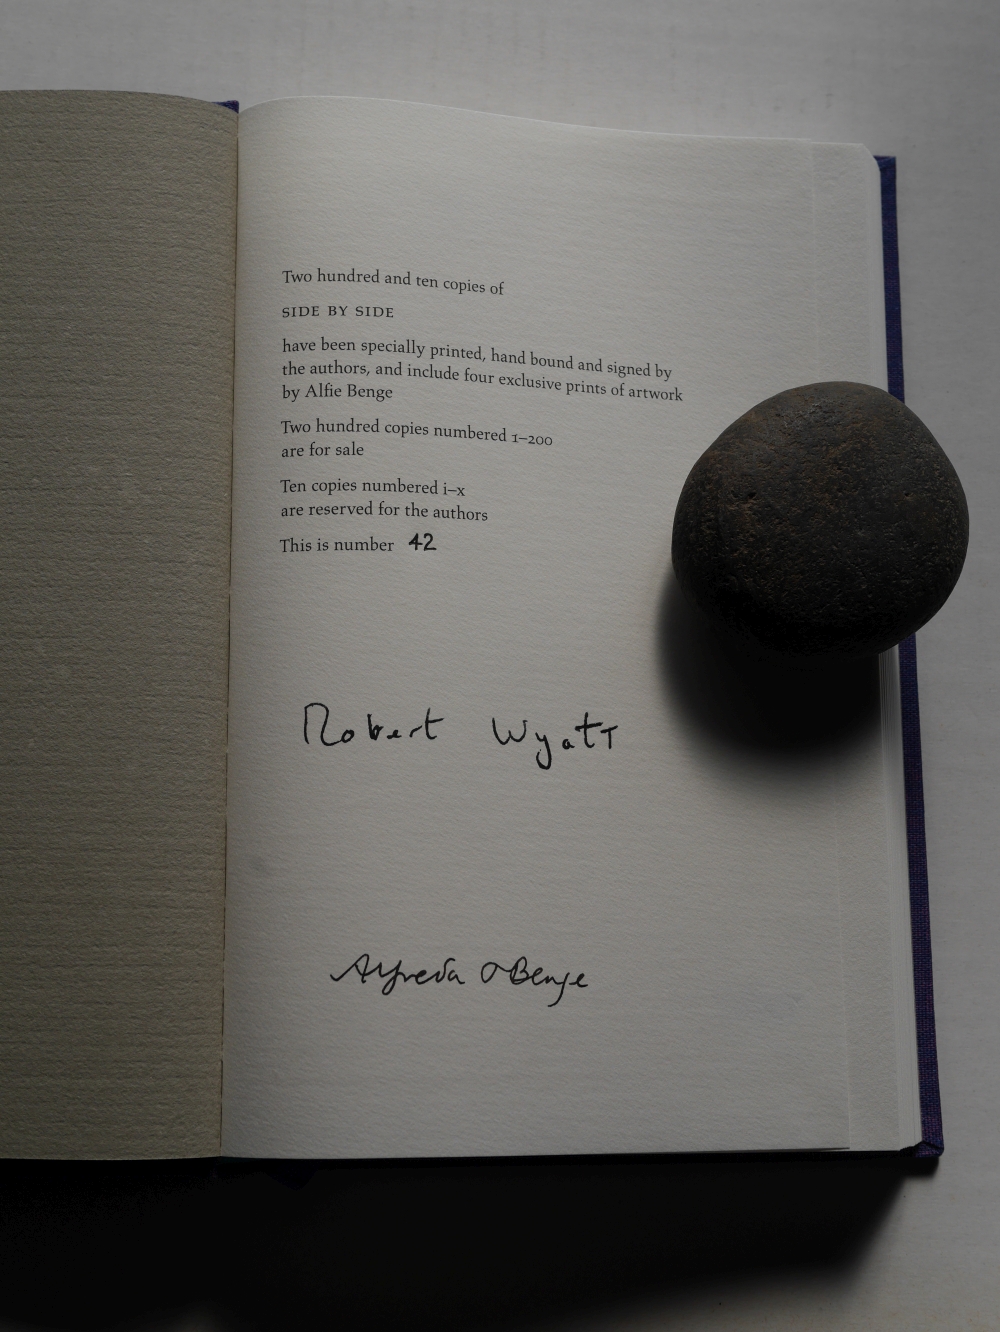 Two hundred and ten copies of
SIDE BY SIDE
have been specially printed, hand bound and signed by
the authors, and include four exclusive prints of artwork
by Alfie Benge
Two hundred copies numbered 1–200
are for sale
Ten copies numbered i–x
are reserved for the authors
This is number 42
Robert Wyatt
Alfreda Benge